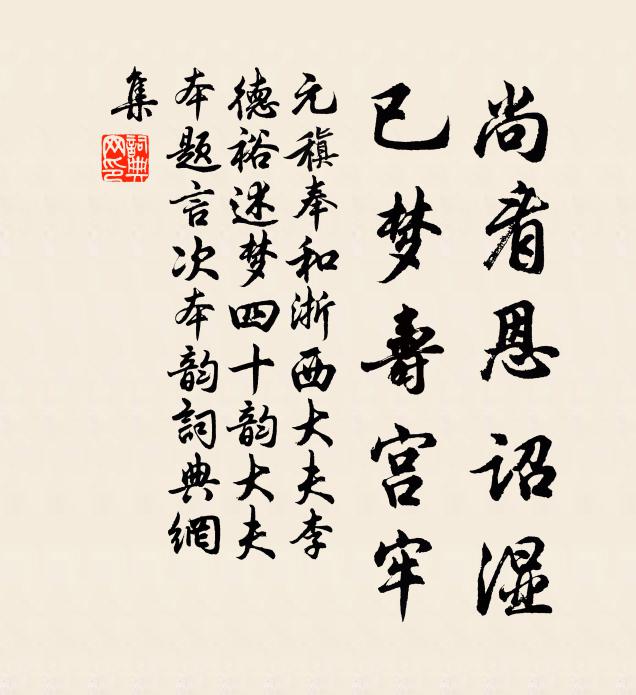 尚看恩诏湿
已梦寿宫牢
元稹奉和浙西大夫李
德裕述梦四十韵大夫
本题言次本韵詞典網
集
詞典網印